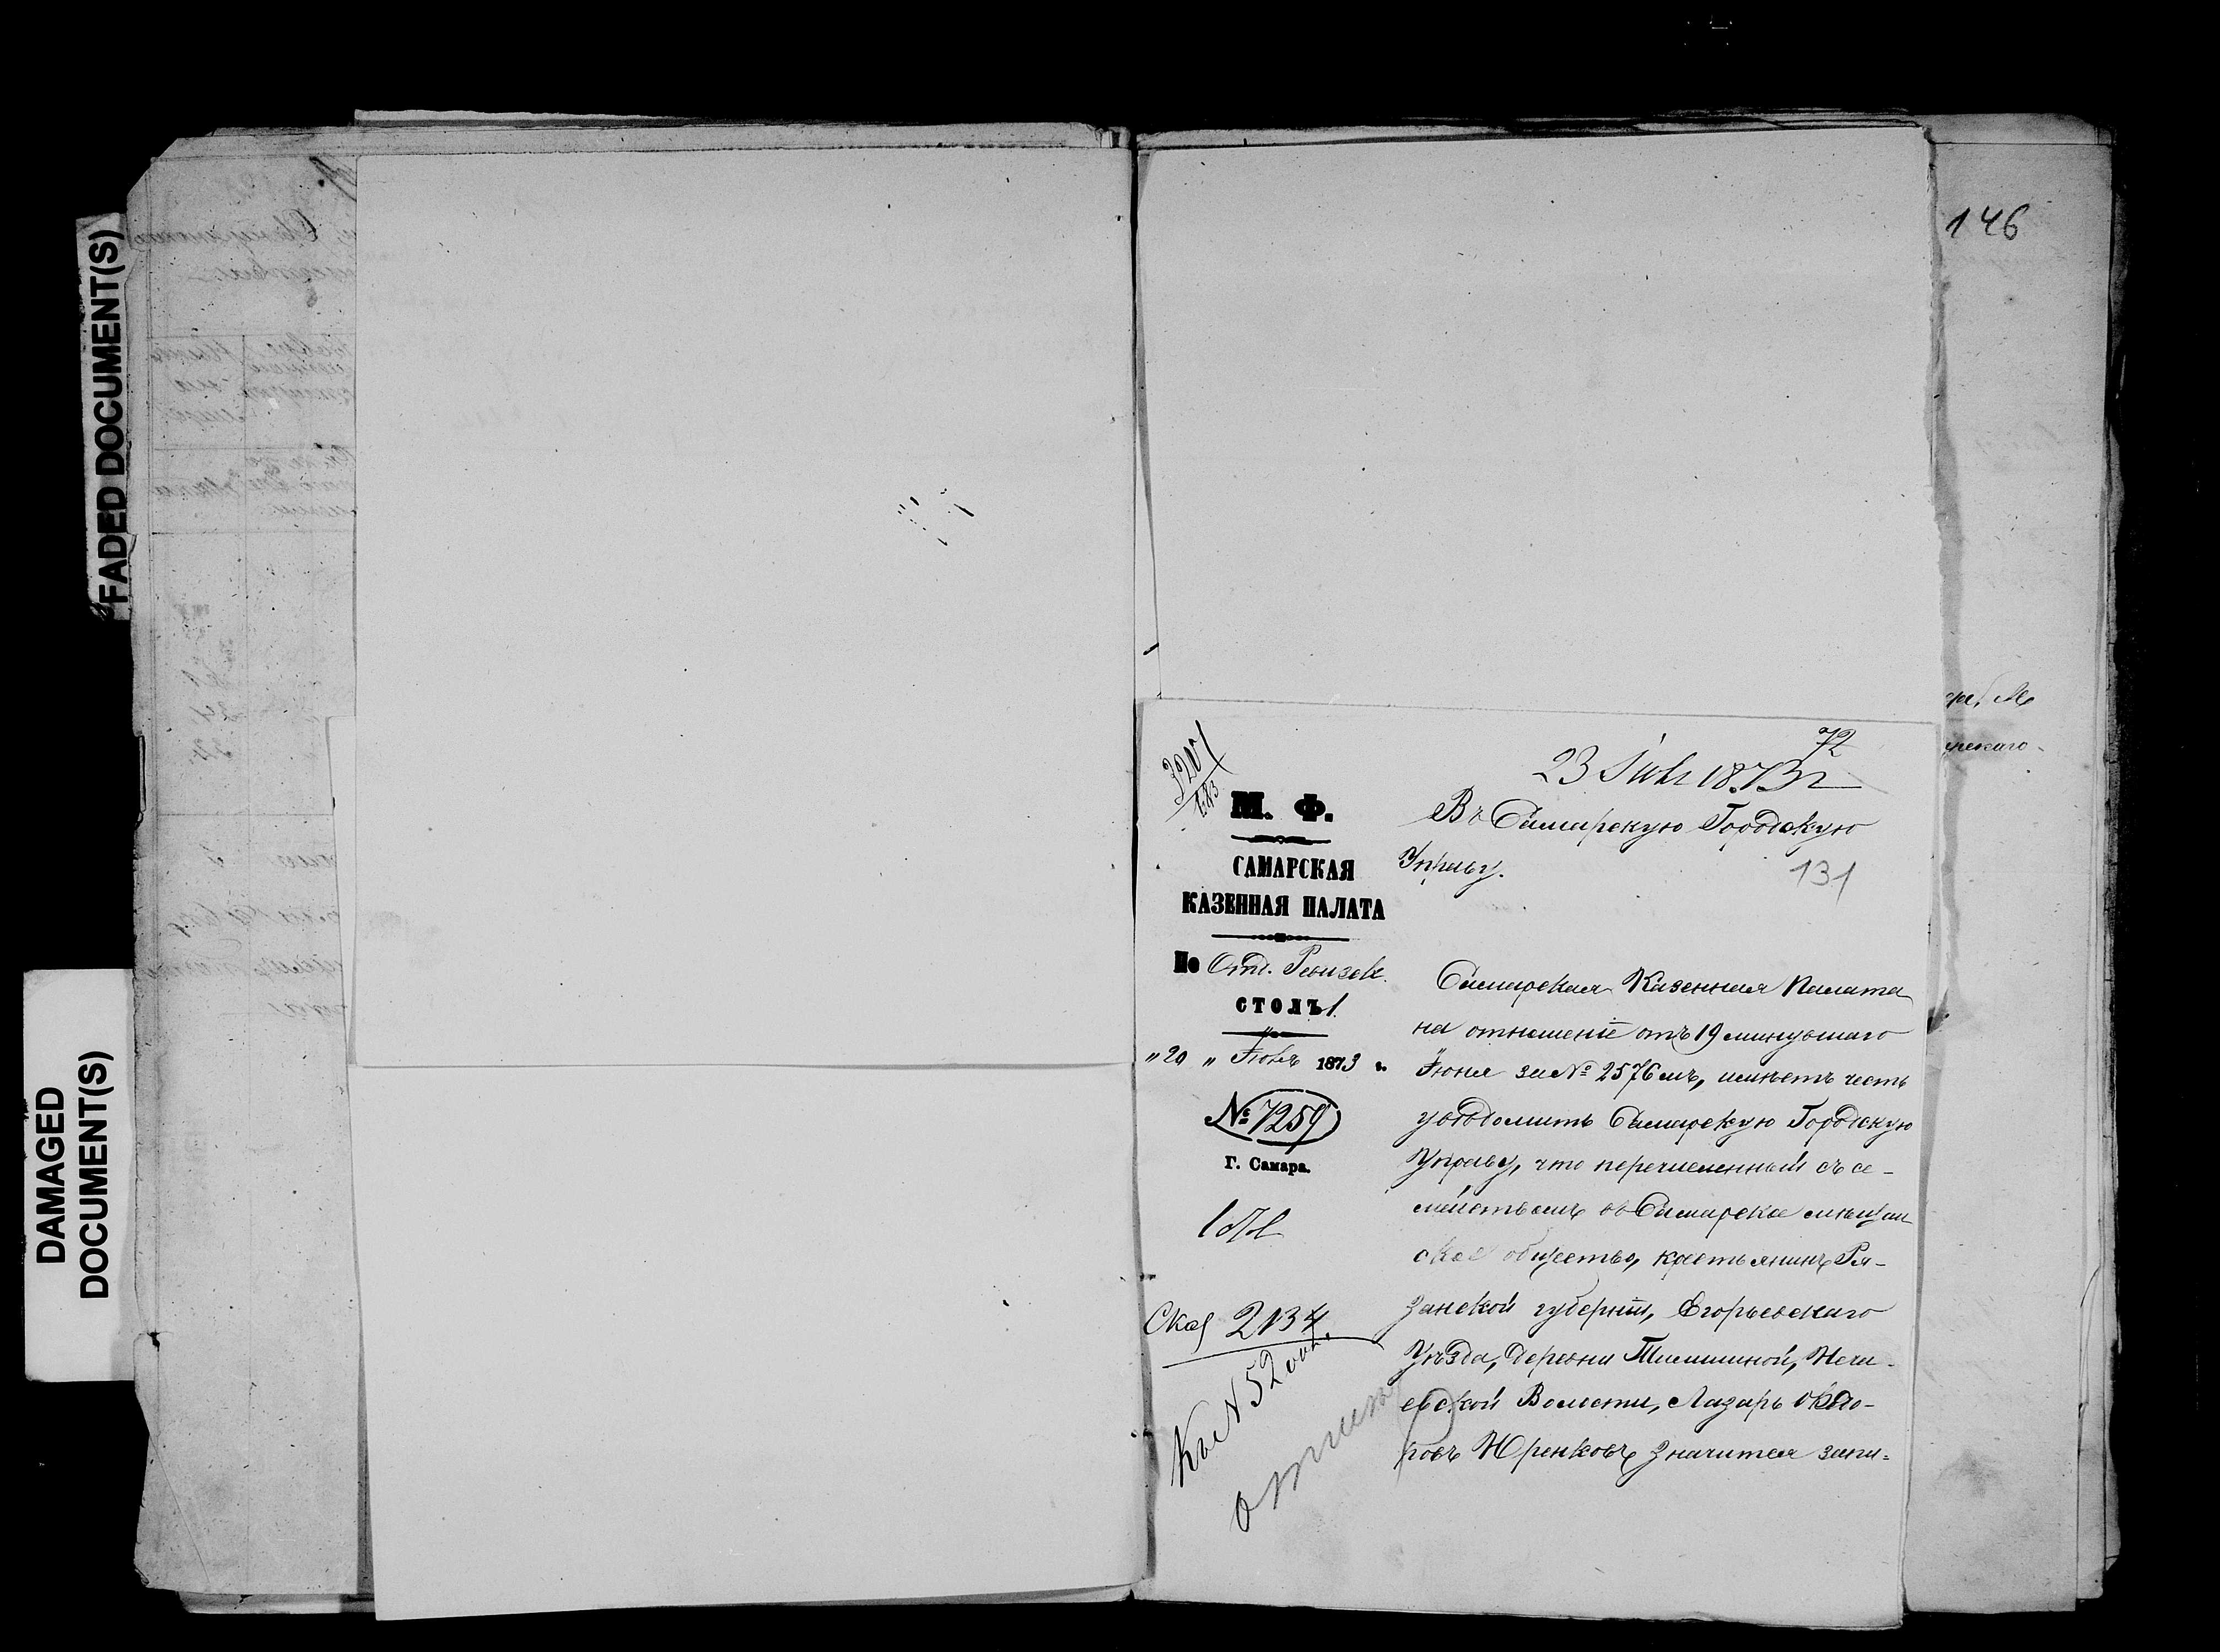 FADED DOCUMENT(S)
DAMAGED
DOCUMENT(S)
146
72
23 Іюля 1873 г
3207
М. Ф.
САМАРСКАЯ
КАЗЕННАЯ ПАЛАТА
По Отд. Ревизск.
СТОЛЪ 1.
„20 „ Іюля 1873 г.
№ 7259
Г. Самара.
2134
Къ № 52
Въ Самарскую Городскую
Управу.
131
Самарская Казенная Палата
на отношеніе отъ 19 минувшаго
Іюня за № 2576 мъ, имѣетъ честь
увѣдомить Самарскую Городскую
Управу, что перечисленный съ се-
мействомъ въ Самарское мѣщан
ское общество, крестьянинъ Ря-
занской губерніи, Егорьевскаго
Уѣзда, деревни
евской Волости, Лазарь
ровъ Юренковъ значится запи-